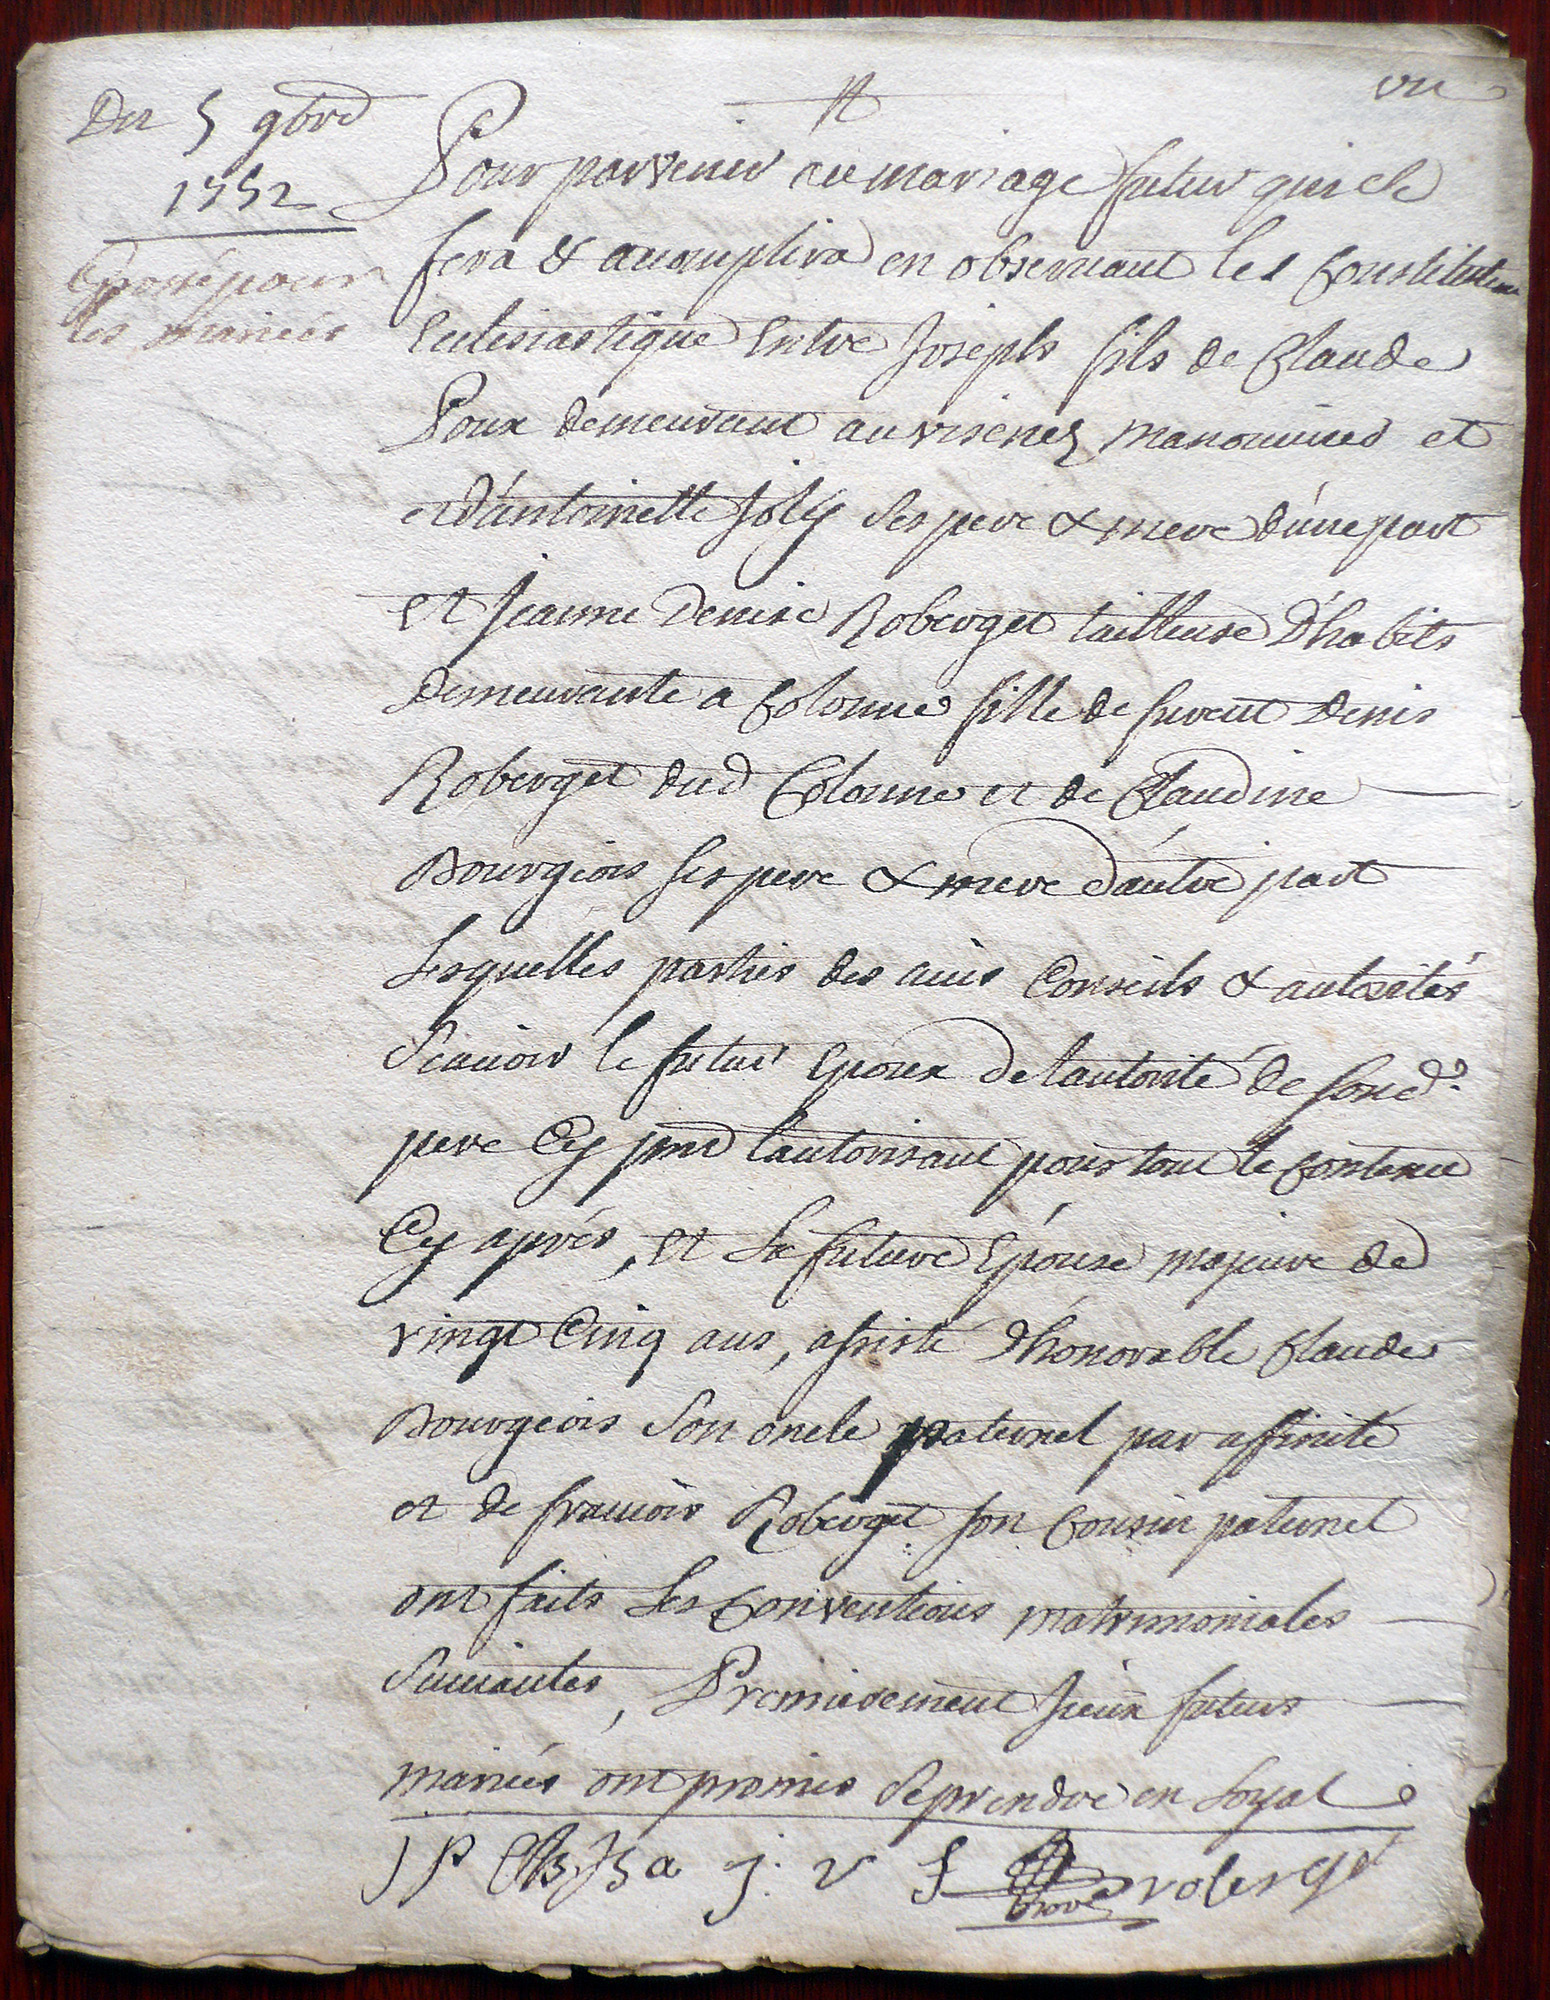 Du 5 9bre
1752
Epossé pour
les mariés
vu
Pour parvenir au mariage futur qui se
fera & acomplira en observant les Constitutions
Eclesiastique Entre Joseph fils de Claude
Poux demeurant au viseney manouvries et
et d'antoinette Joly ses pere & mere d'une part
et Jeanne Denise Roberget tailleuse d'habits
demeurante a Colonne fille de furent Denis
Roberget dud Colonne et de Claudine
Bourgiois ses pere & mere d'autre part
Lesquelles parties des avis Conseils & autorités
Scavoir le futur Epoux de lautorité de sond.
pere Cy pnt lautorisant pour tout le Contenu
Cy aprés, et La future Epouse majeure de
vingt Cinq ans, assisté d'honorable Claude
Bourgeois Son oncle paternel par affinité
et de francois Roberget son Cousin paternel
ont faits Les Conventions matrimoniales
Suivantes, Premierement Iceux futurs
mariés ont promis Se prendre en Loyal
J P C B J B a j. v f roberget